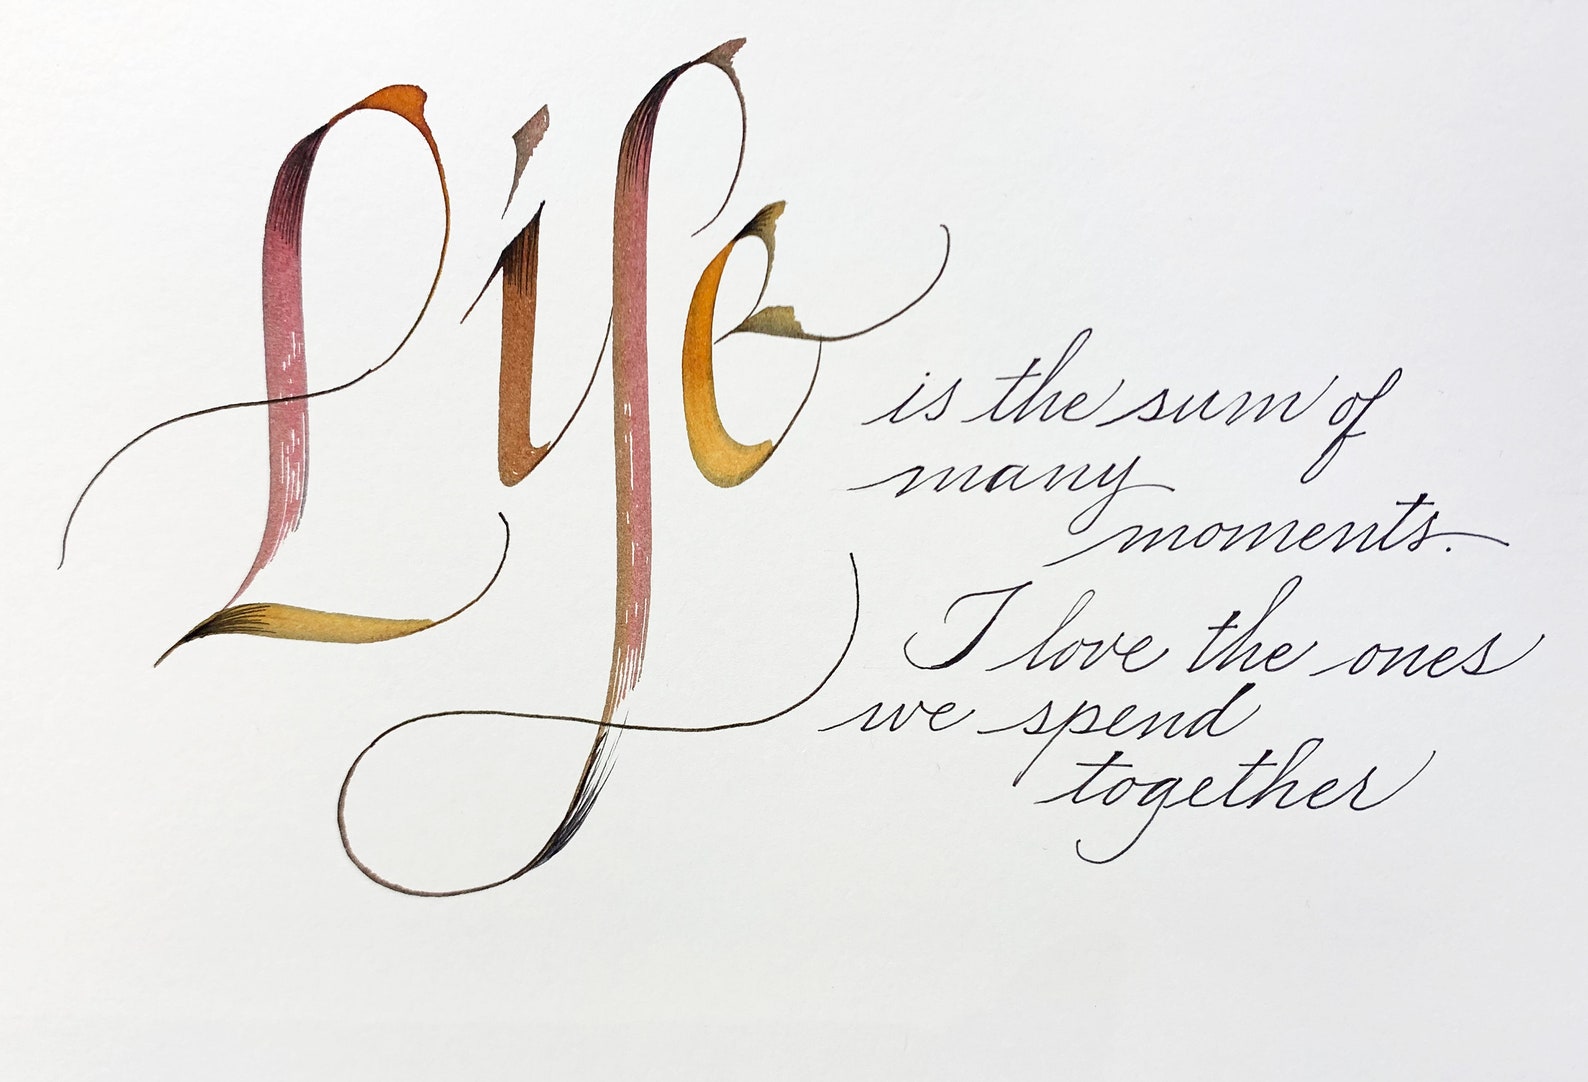 Life
is the sum of
many
moments.
I love the ones
we spend
together